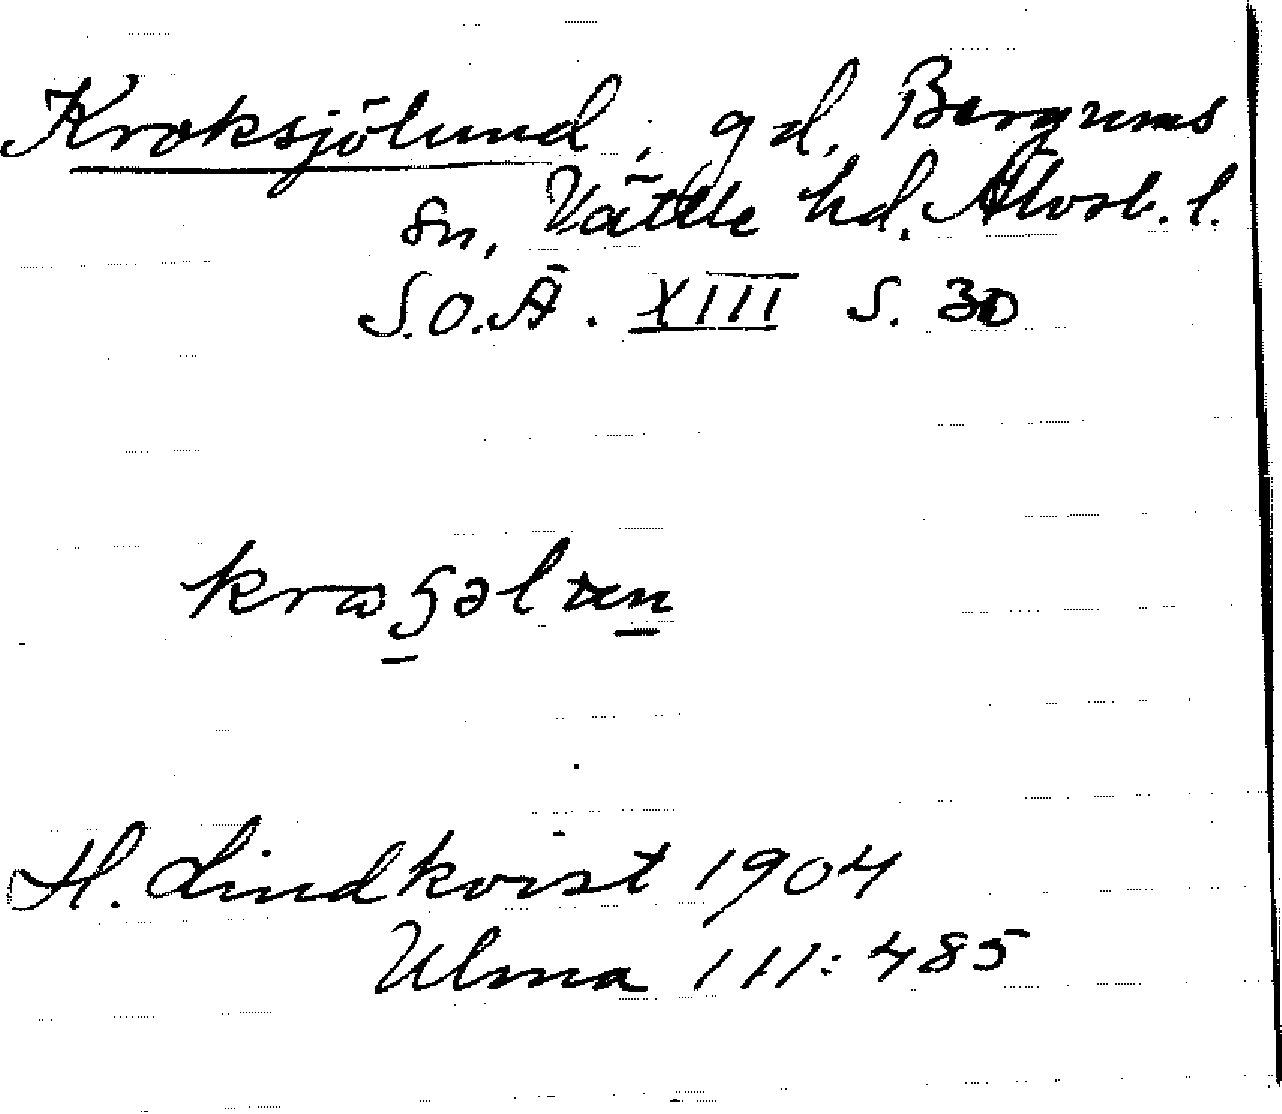 Kroksjölund, gd, Bergums
sn, Vättle hd. Älvsb. l.
S.O.Ä. XIII S. 30
H. Lindkvist 1904
Ulma 111:485